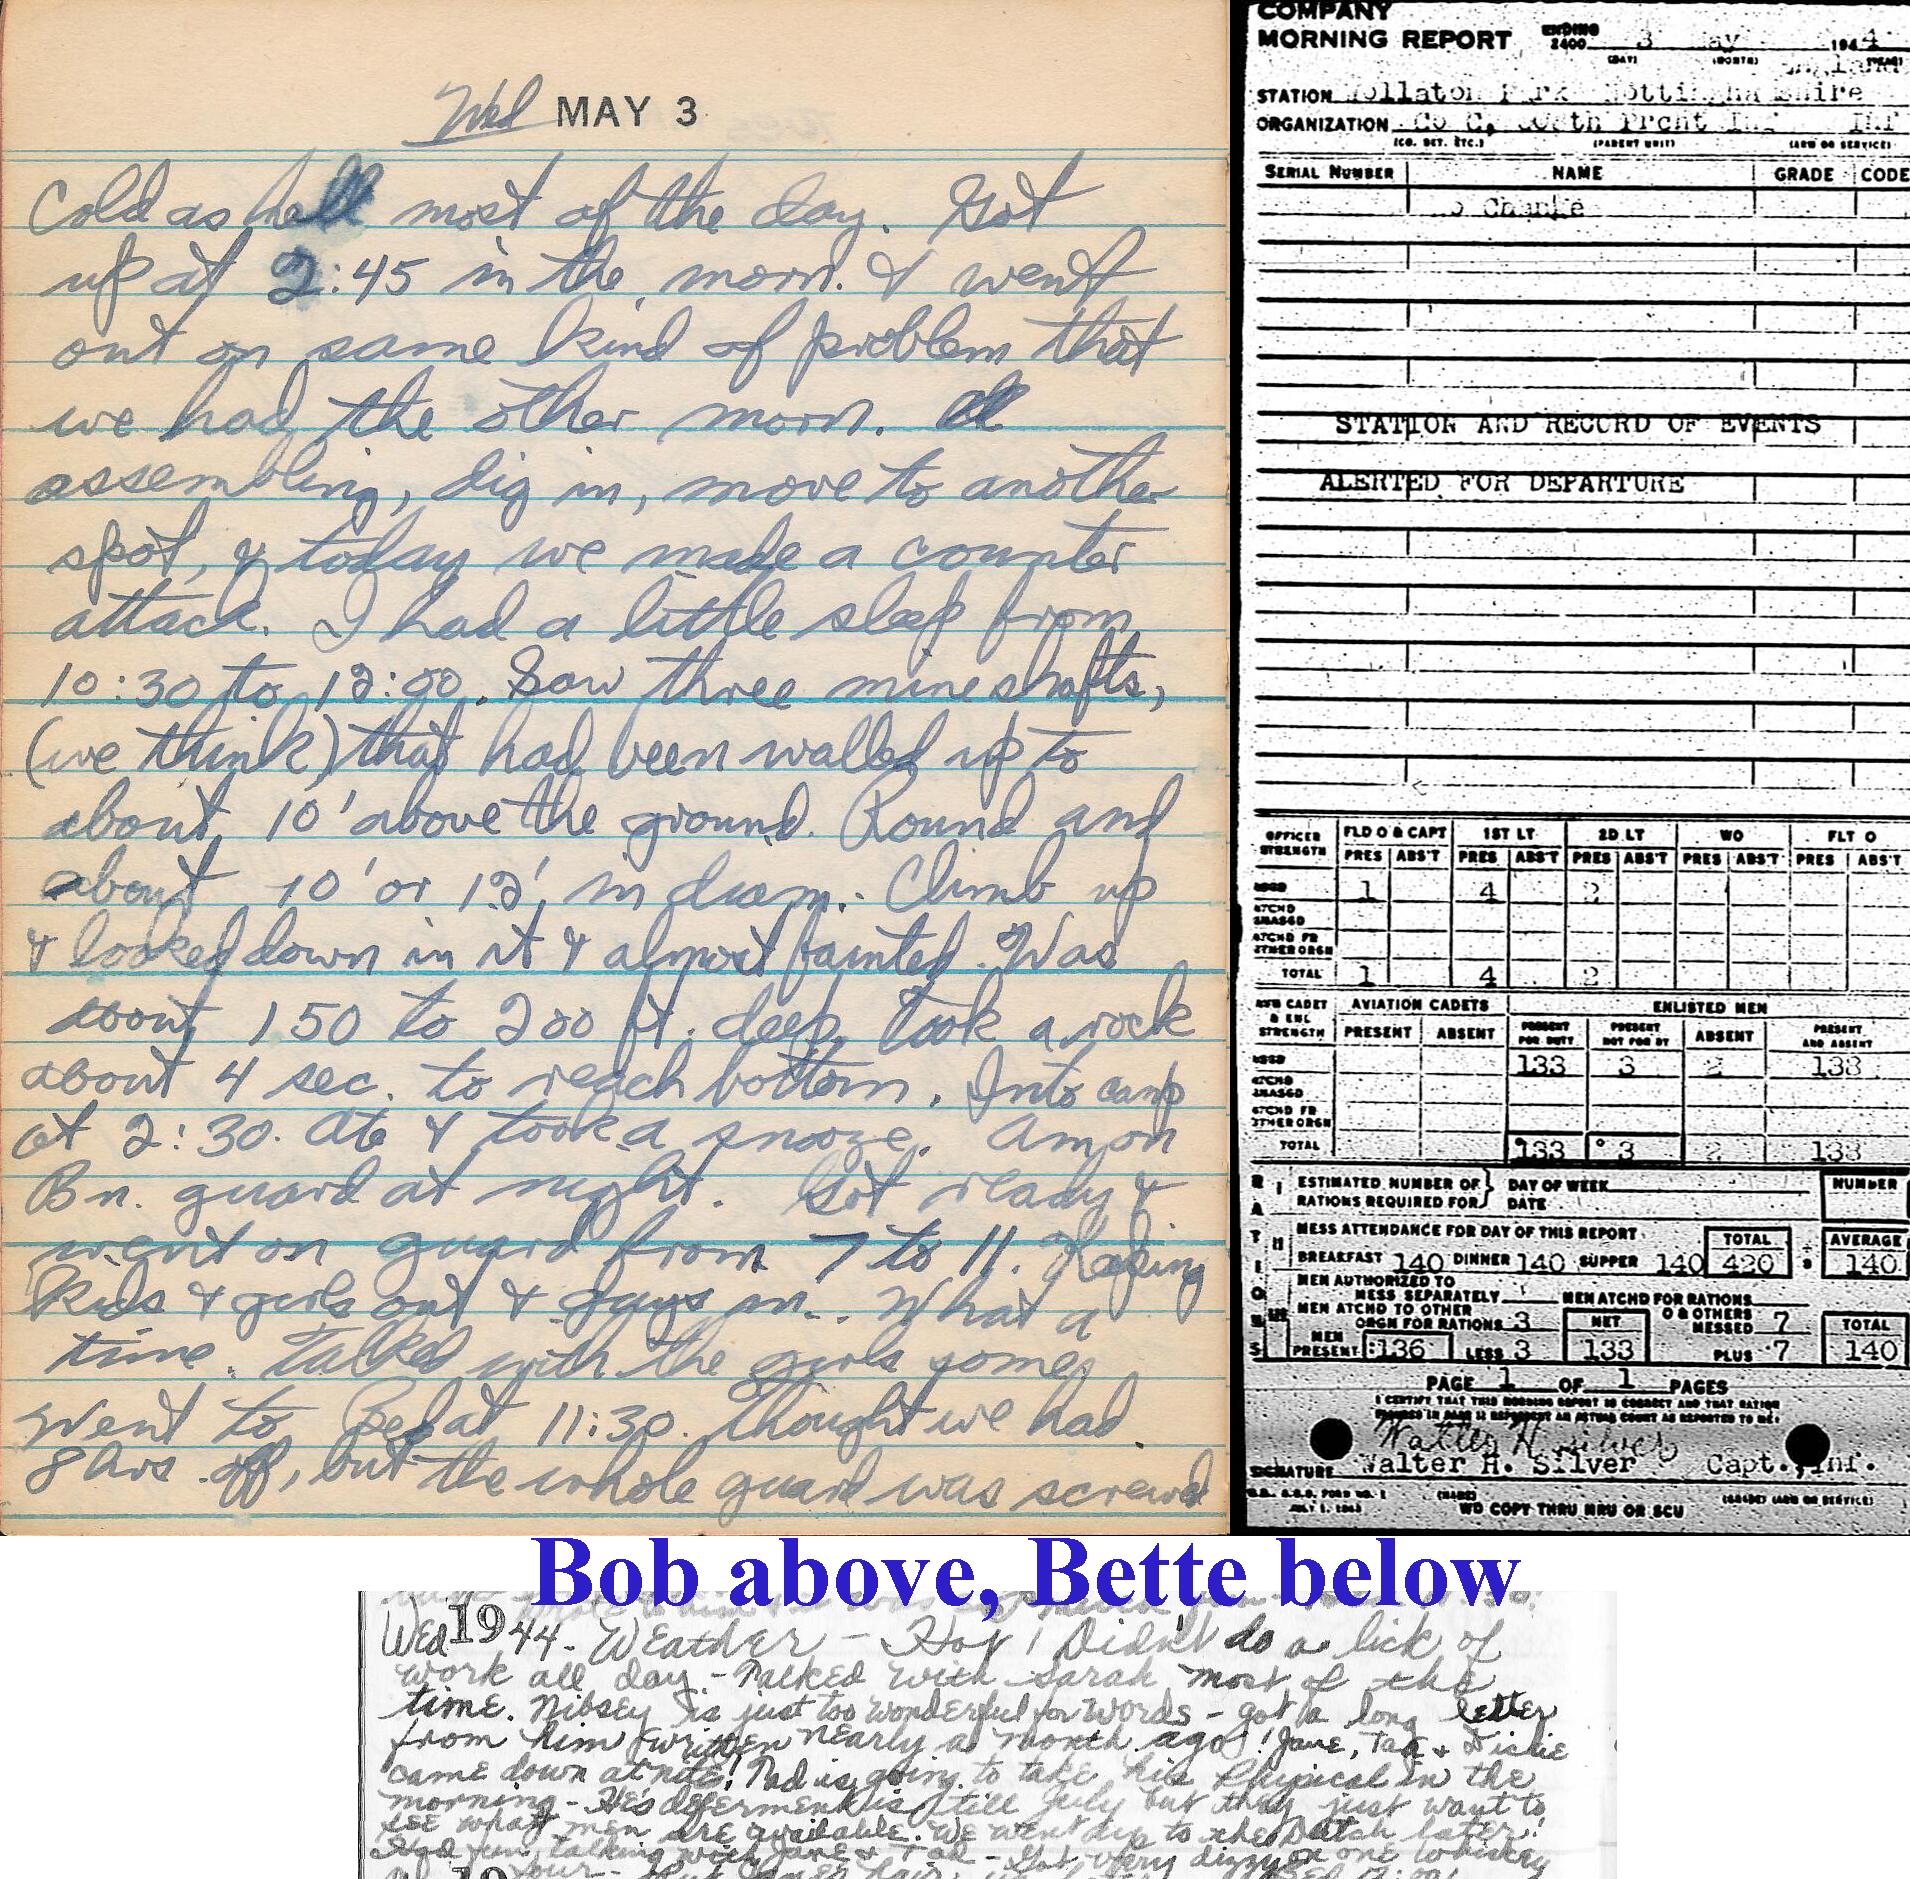 Wed MAY 3
Cold as hell most of the day. Got
up at 2:45 in the morn. & went
out on same kind of problem that
we had the other morn.
assembling, dig in, move to another
spot, & today we made a counter
attack. I had a little sleep from
10:30 to 12:00. Saw three mine shafts,
(we think) that had been walled up to
about 10' above the ground. Round and
about 10' or 12' in diam. Climb up
& looked down in it & almost fainted. Was
about 150 to 200 ft. deep. Took a rock
about 4 sec. to reach bottom. Into camp
at 2:30. Ate & took a snooze. Am on
Bn. guard at night. Got ready &
went on guard from 7 to 11. Keeping
kids & girls out & guys in. What a
time. Talked with the girls some,
Went to Bed at 11:30. Thought we had
8 hrs. off, but the whole guard was screwed
COMPANY
MORNING REPORT ENDING 2400 3 May 1944
(DAY) (MONTH) (YEAR)
England
STATION Wollaton Park Nottinghamshire
ORGANIZATION Co C, Prcht Inf Inf
(CO. DET. ETC.) (PARENT UNIT) (ARM OR SERVICE)
SERIAL NUMBER NAME GRADE CODE
No Change
STATION AND RECORD OF EVENTS
ALERTED FOR DEPARTURE
OFFICER STRENGTH FLD O & CAPT 1ST LT 2D LT WO FLT O
PRES ABS'T PRES ABS'T PRES ABS'T PRES ABS'T PRES ABS'T
ASGD 1 4 2
ATCHD UNASGD
ATCHD FR OTHER ORGN
TOTAL 1 4 2
AVN CADET & ENL STRENGTH AVIATION CADETS ENLISTED MEN
PRESENT ABSENT PRESENT FOR DUTY PRESENT NOT FOR DY ABSENT PRESENT AND ABSENT
ASGD 133 3 2 138
ATCHD UNASGD
ATCHD FR OTHER ORGN
TOTAL 133 3 2 138
RATIONS
ESTIMATED NUMBER OF RATIONS REQUIRED FOR DAY OF WEEK DATE NUMBER
MESS ATTENDANCE FOR DAY OF THIS REPORT TOTAL AVERAGE
BREAKFAST 140 DINNER 140 SUPPER 140 420 140
MEN AUTHORIZED TO MESS SEPARATELY MEN ATCHD FOR RATIONS
MEN ATCHD TO OTHER ORGN FOR RATIONS 3 NET O & OTHERS MESSED 7 TOTAL
MEN PRESENT 136 LESS 3 133 PLUS 7 140
PAGE 1 OF 1 PAGES
I CERTIFY THAT THIS MORNING REPORT IS CORRECT AND THAT RATION
Walter H. Silver
SIGNATURE Walter H. Silver Capt., Inf.
(NAME) (GRADE) (ARM OR SERVICE)
JULY 1, 1943 WD COPY THRU MRU OR SCU
Bob above, Bette below
Wed 1944- Weather - Hot! Didn't do a lick of
work all day - Talked with Sarah most of the
time. Nibsey is just too wonderful for words - got a long letter
from him written nearly a month ago! Jane, Tad & Dickie
came down at nite! Tad is going to take his Physical in the
morning - His deferment is till July but they just want to
see what men are available. We went up to the Dutch later!
Had fun talking with Jane & Tad - Got very dizzy on one whiskey
19 sour -